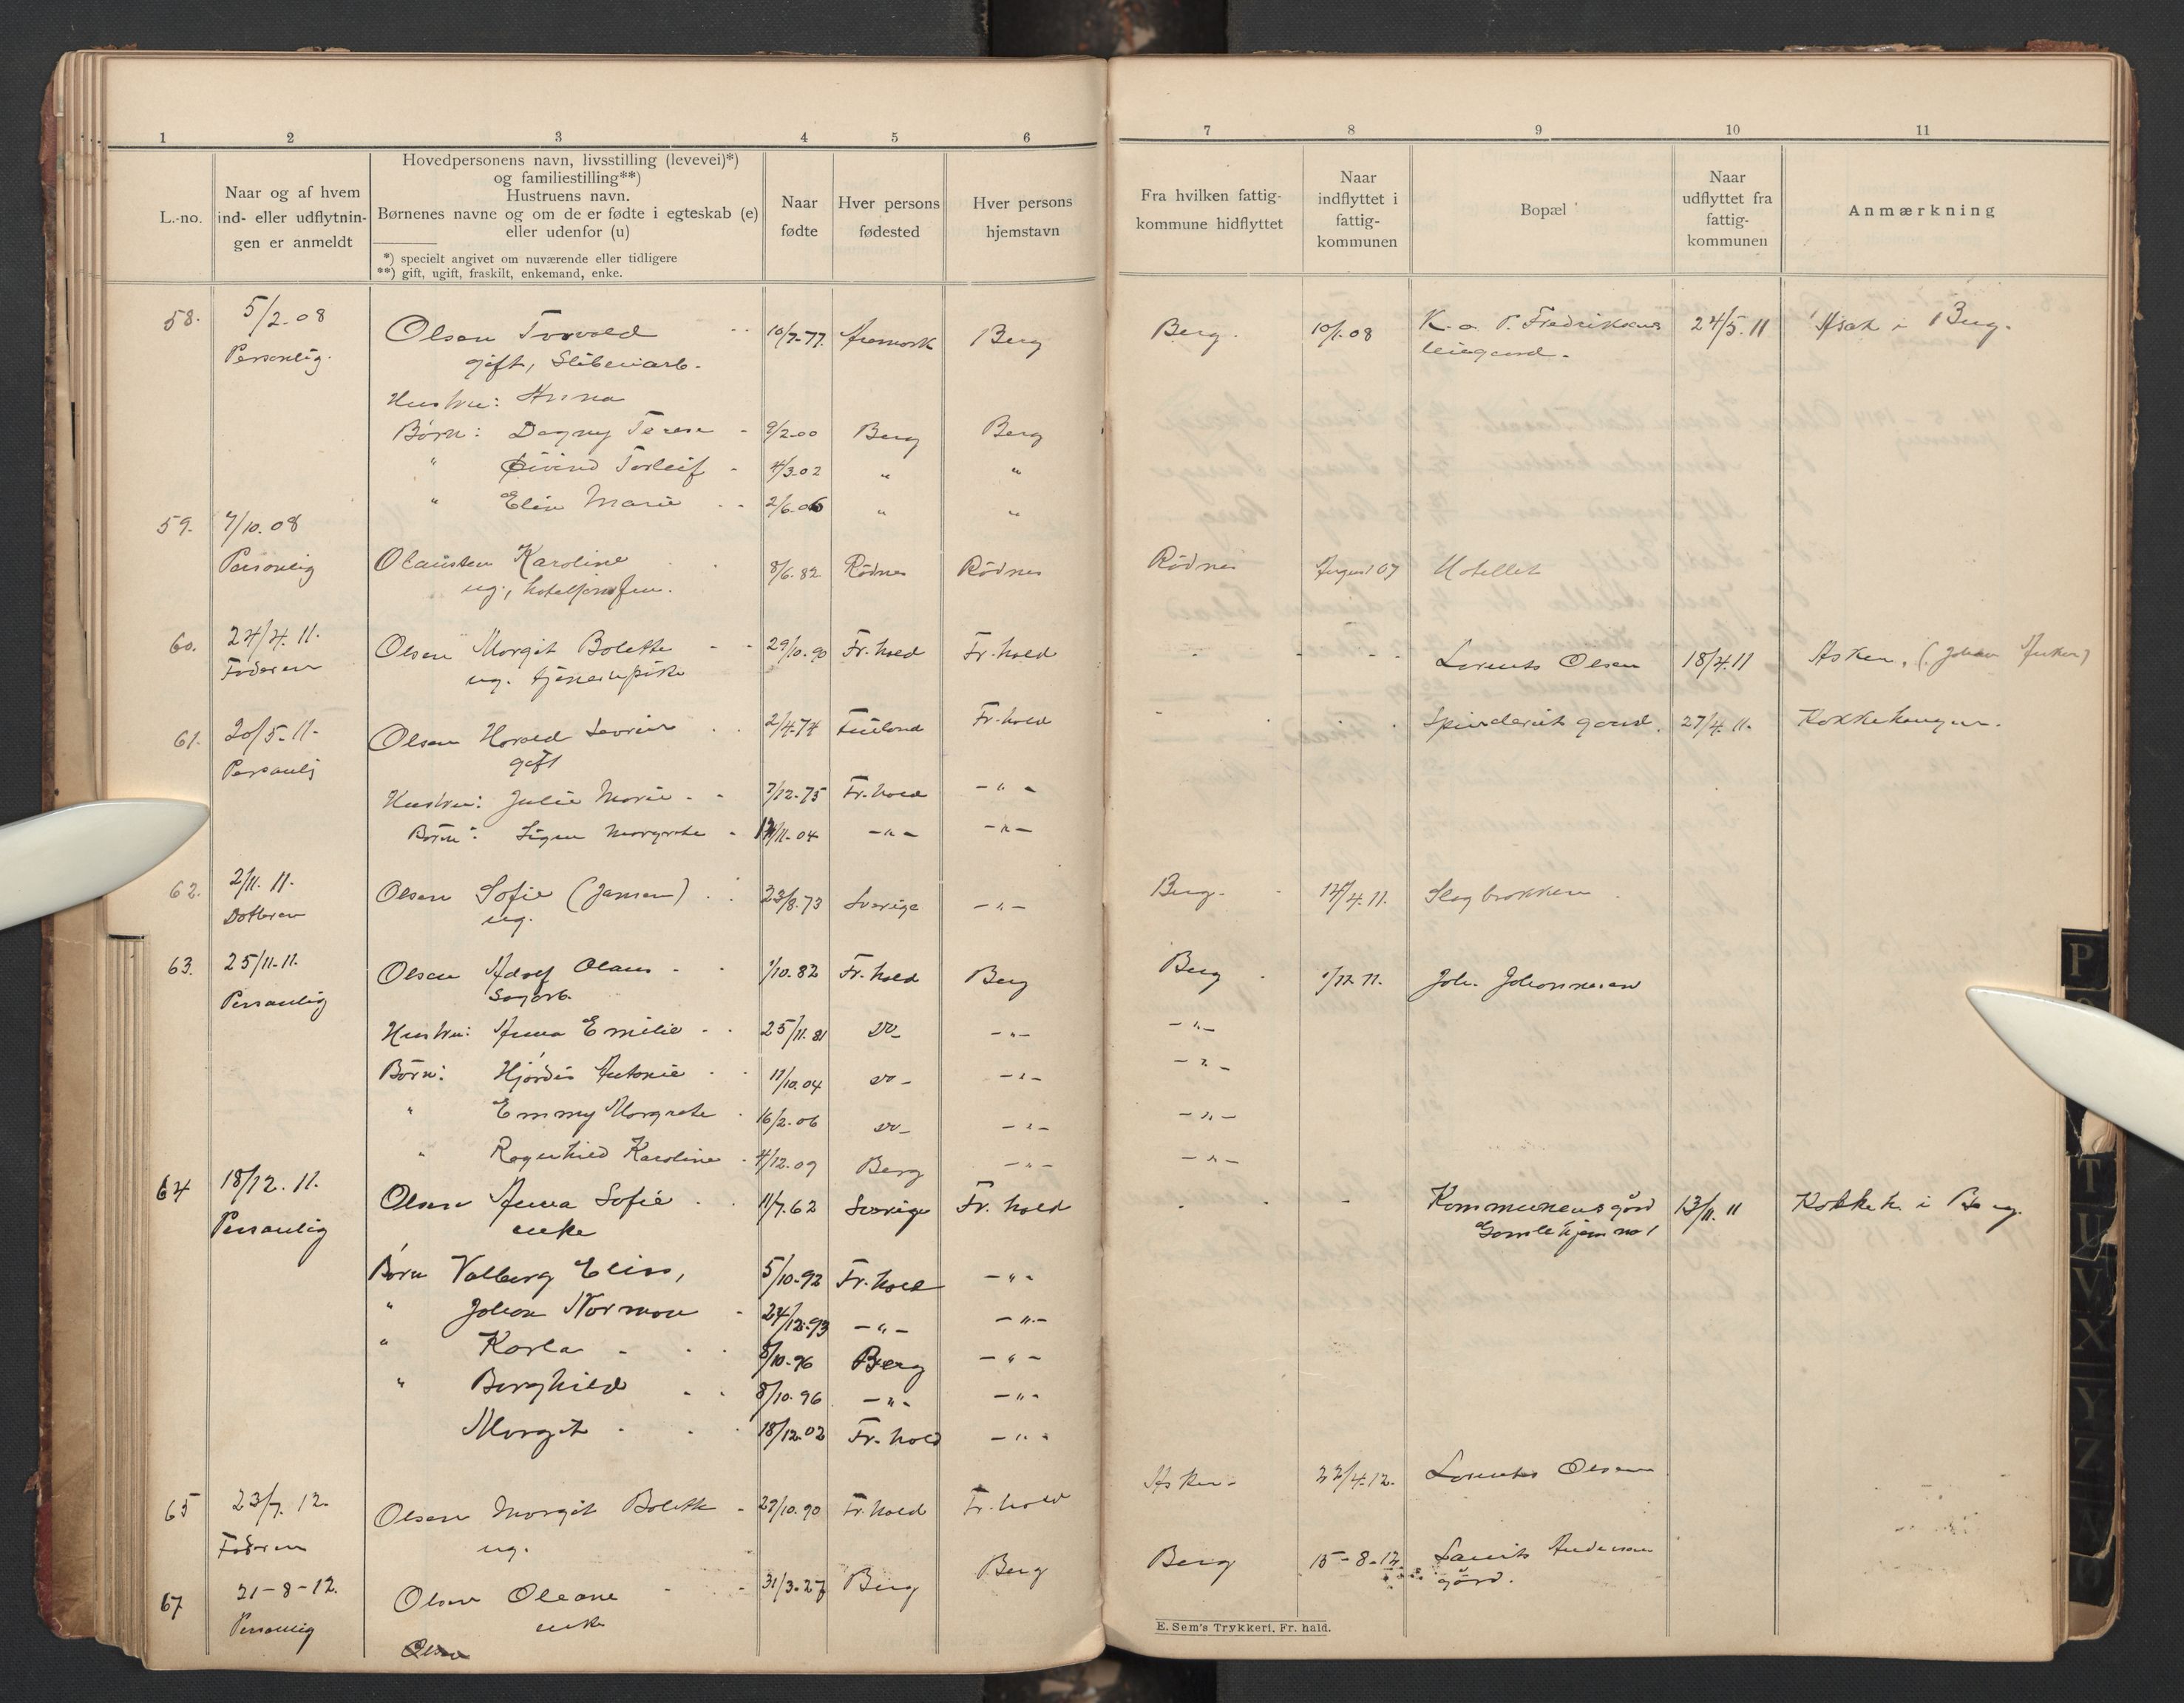 1 2 3 4 5 6 7 8 9 10 11
L.-no.
Naar og af hvem
ind- eller udflytnin-
gen er anmeldt
Hovedpersonens navn, livsstilling (levevei)*)
og familiestilling**)
Hustruens navn.
Børnenes navne og om de er fødte i egteskab (e)
eller udenfor (u)
*) specielt angivet om nuværende eller tidligere
**) gift, ugift, fraskilt, enkemand, enke.
Naar
fødte
Hver persons
fødested
Hver persons
hjemstavn
Fra hvilken fattig-
kommune hidflyttet
Naar
indflyttet i
fattig-
kommunen
Bopæl
Naar
udflyttet fra
fattig-
kommunen
Anmærkning
58. 5/2-08 Olsen Torvald 10/7-77. Aremark Berg Berg. 10/1-08 K. o. P. Fredriksens 24/5. 11 Asak i Berg.
Personlig. gift, Sliberiarb. leiegaard.
Hustru: Anna
Børn: Dagny Terese 9/2-00 Berg Berg
" Øivind Torleif 4/3-02 " "
" Elin Marie 2/6-06 " "
59. 7/10. 08
Personlig Olausten Karoline 8/6. 82 Rødnes Rødnes Rødnes August 07 Hotellet
ug., hoteljomfru.
60. 24/4. 11. Olsen Margit Bolette 29/10. 90 Fr.hald Fr.hald Lorents Olsen 18/4. 11 Asker, (Johan Anker)
Faderen ug. tjenestpike
61. 20/5-11. Olsen Harald Levrin 2/4-74 Finland Fr.hald Spinderiets gaard. 27/4. 11. Kokkehaugen.
Personlig gift
Hustru: Julie Marie 7/12-75 Fr.hald -"-
Børn: Signe Margrete /11-04 -"- -"-
62. 2/11. 11. Olsen Sofie (Jansen) 23/8. 73 Sverige -"- Berg. 14/4. 11. Slagbrokken
Datteren ug.
63. 25/11-11. Olsen Adolf Olaus 1/10. 82 Fr.hald Berg Berg 1/11. 11. Joh. Johannesen
Personlig Sagarb.
Hustru: Anna Emilie 25/11. 81 do- -"- -"-
Børn: Hjørdis Antonie 11/10. 04 do- -"- -"-
" Emmy Margrete 16/2-06 do- -"- -"-
" Ragnhild Karoline 4/12. 09 Berg -"- -"-
64 18/12. 11. Olsen Anna Sofie 11/7. 62 Sverige Fr. hald Kommunens gård 13/11. 11 Kokkeh. i Berg.
Personlig enke Gamlehjem no 1
Børn Valborg Elise, 5/10-92 Fr.hald -"-
" Johan Norman 24/12-93 -"- -"-
" Karla 8/10-96 Berg -"-
" Borghild 8/10-96 -"- -"-
Margit 18/12-02 Fr.hald -"-
65 23/7. 12. Olsen Margit Bolette 29/10. 90 Fr.hald Fr.hald Asker. 22/4. 12. Lorents Olsen
Faderen ug.
67 21-8-12. Olsen Oleane 31/3-27 Berg Berg Berg 15-8-12. Laurits Andersen
Personlig enke gård.
Olsen
E. Sem's Trykkeri, Fr. hald.
P
T
U
V
X
Y
Z